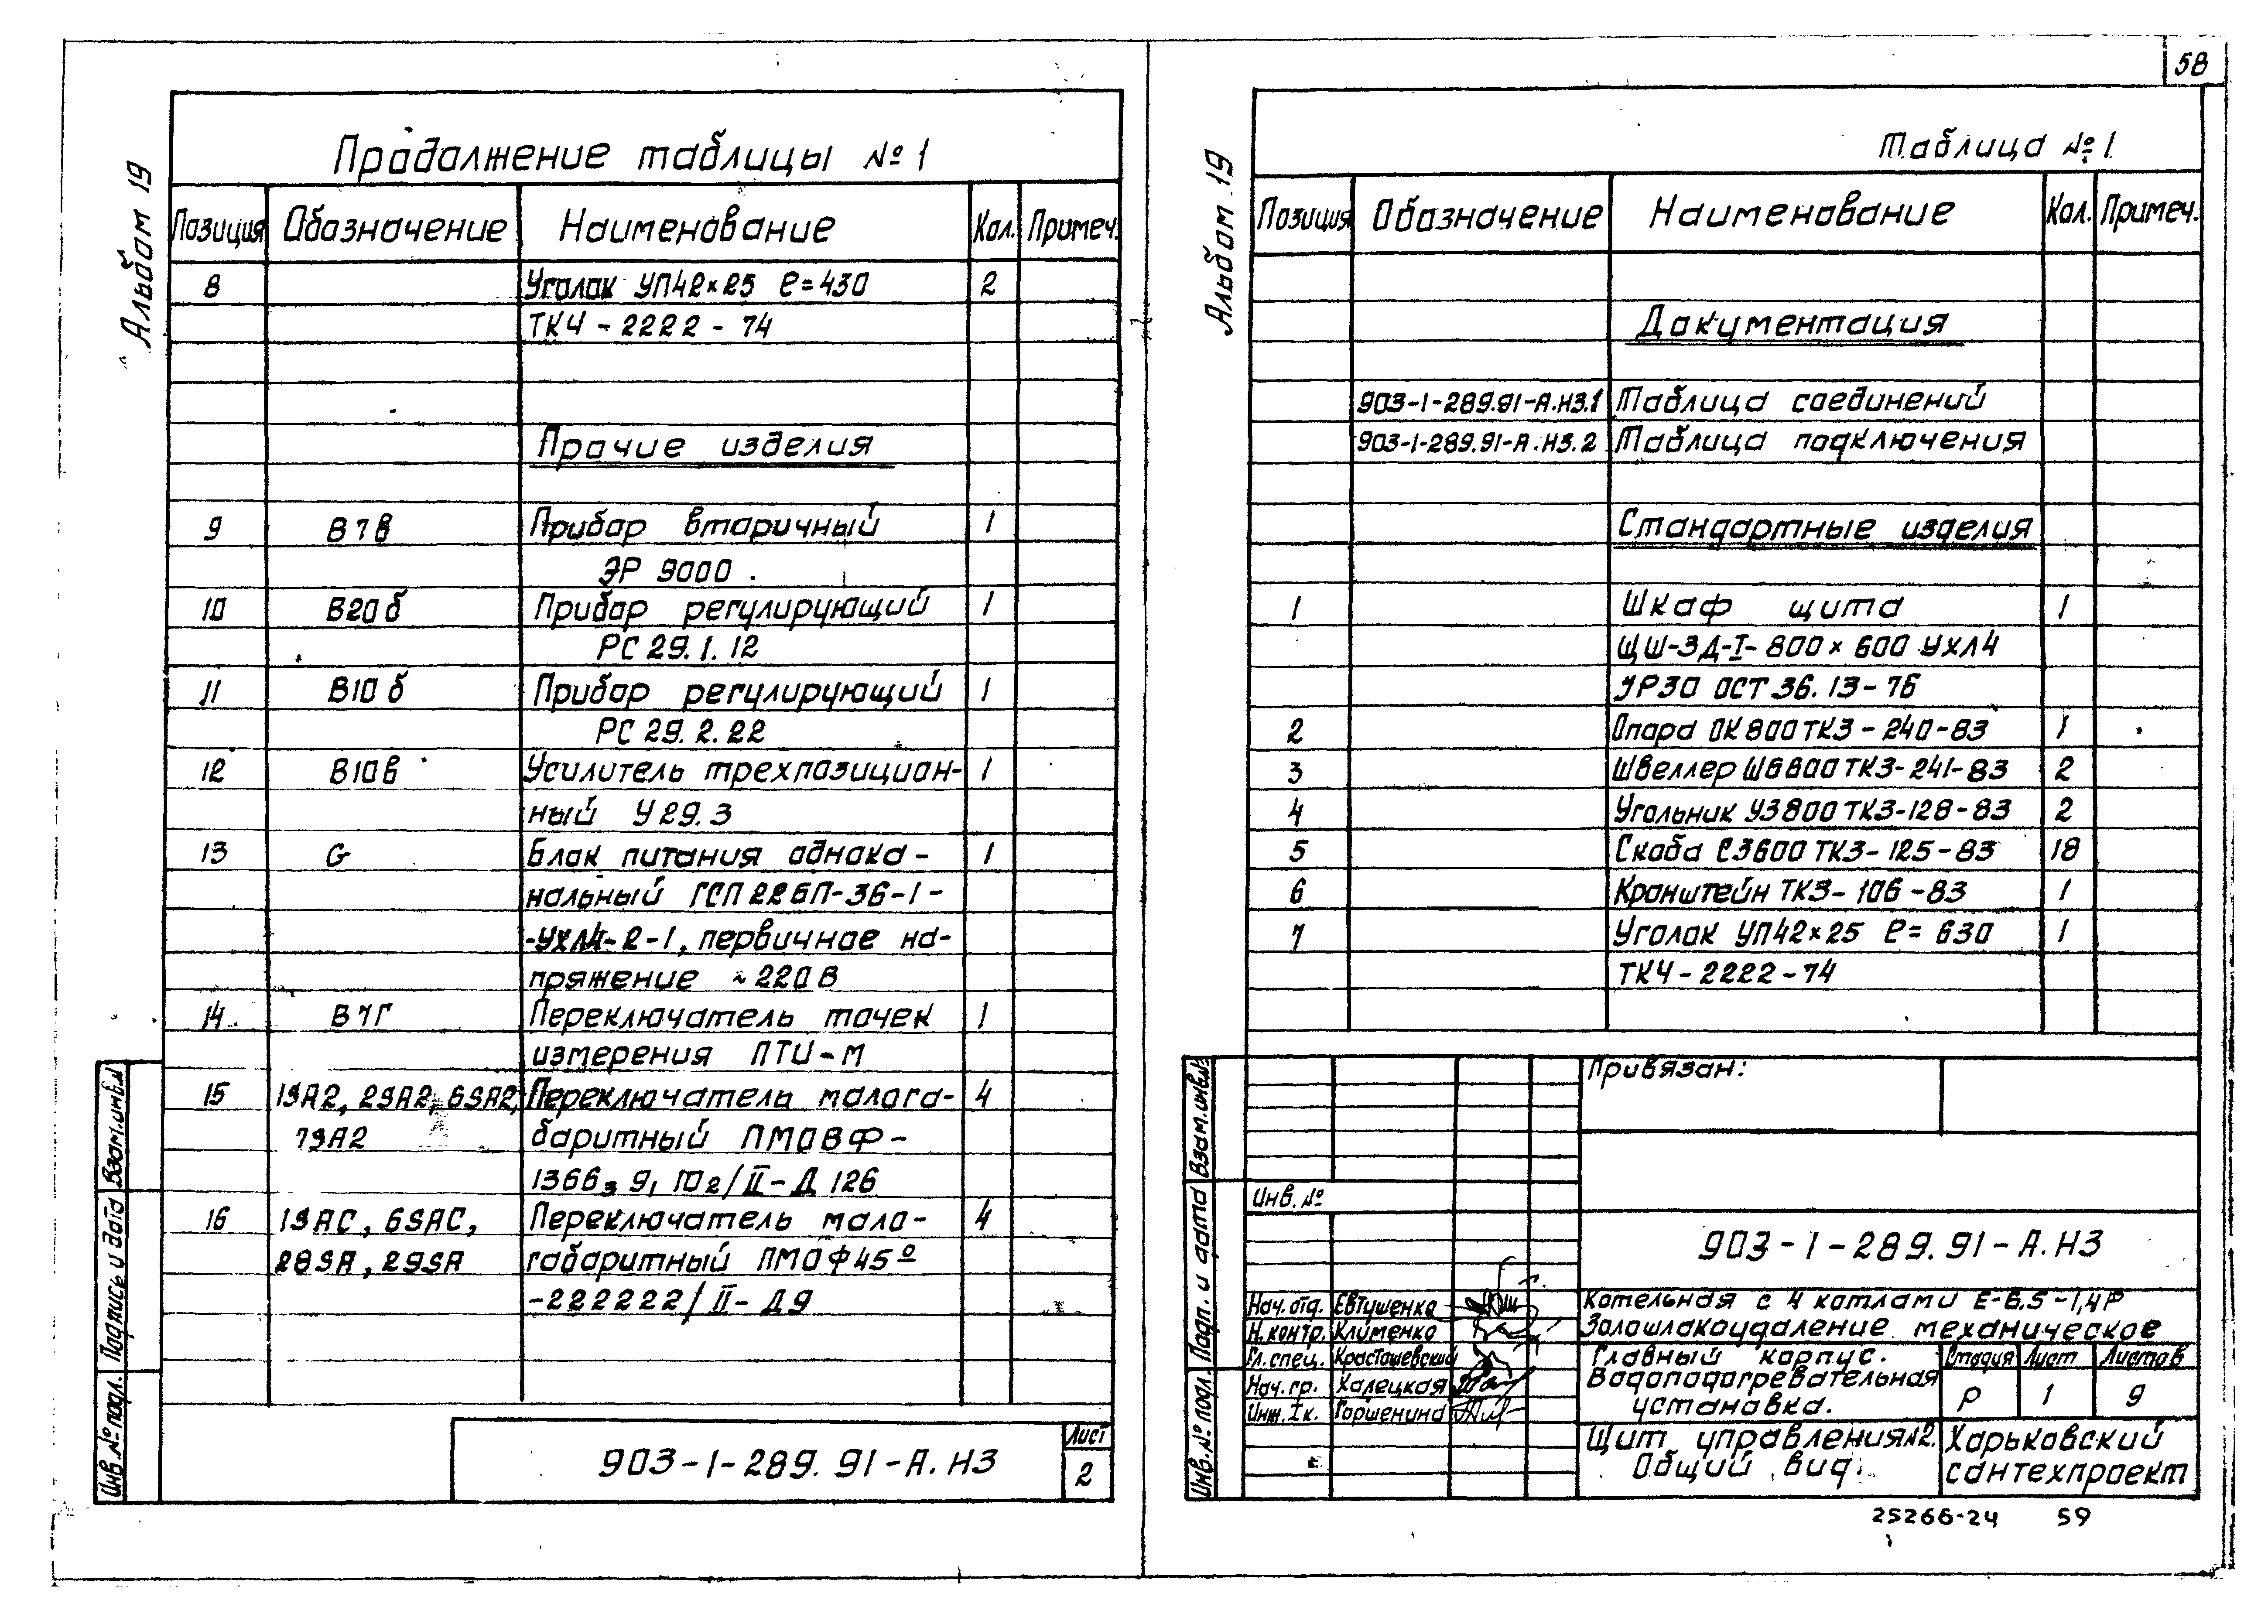 58
Альбом 19
Продолжение таблицы №1
Позиция Обозначение Наименование Кол. Примеч.
8 Уголок УП42×25 ℓ=430 2
ТКЧ-2222-74
Прочие изделия
9 В7в Прибор вторичный 1
ЭР 9000.
10 В20б Прибор регулирующий 1
РС 29.1.12
11 В10б Прибор регулирующий 1
РС 29.2.22
12 В10в Усилитель трехпозицион- 1
ный У29.3
13 G Блок питания однока- 1
нальный ГСП 22БП-36-1-
-УХЛ4-2-1, первичное на-
пряжение ~220В
14 В7г Переключатель точек 1
измерения ПТИ-М
15 1SA2, 2SA2, 6SA2, Переключатель малога- 4
7SA2 баритный ПМОВФ-
1366з 9, 10 2/II-Д 126
16 1SAC, 6SAC, Переключатель мало- 4
28SA, 29SA габаритный ПМОФ45º
-222222/II-Д9
903-1-289.91-А.Н3
Лист
2
Инв.№ подл. Подпись и дата Взам.инв.№
Альбом 19
Таблица №1.
Позиция Обозначение Наименование Кол. Примеч.
Документация
903-1-289.91-А.Н3.1 Таблица соединений
903-1-289.91-А.Н3.2 Таблица подключения
Стандартные изделия
1 Шкаф щита 1
ЩШ-ЗД-I-800×600 УХЛ4
УР30 ОСТ 36.13-76
2 Опора ОК800 ТК3-240-83 1
3 Швеллер Ш6800 ТК3-241-83 2
4 Угольник У3800 ТК3-128-83 2
5 Скоба С3600 ТК3-125-83 18
6 Кронштейн ТК3-106-83 1
7 Уголок УП42×25 ℓ=630 1
ТКЧ-2222-74
Привязан:
Инв.№
903-1-289.91-А.Н3
Нач.отд. Евтушенко
Н.контр. Клименко
Гл.спец. Красташевский
Нач.гр. Халецкая
Инж.Iк. Горшенина
Котельная с 4 котлами Е-6,5-1,4Р
Золошлакоудаление механическое
Главный корпус.
Водоподогревательная
установка.
Стадия Лист Листов
Р 1 9
Щит управления №2.
Общий вид.
Харьковский
сантехпроект
Инв.№ подл. Подп. и дата Взам.инв.№
25266-24 59